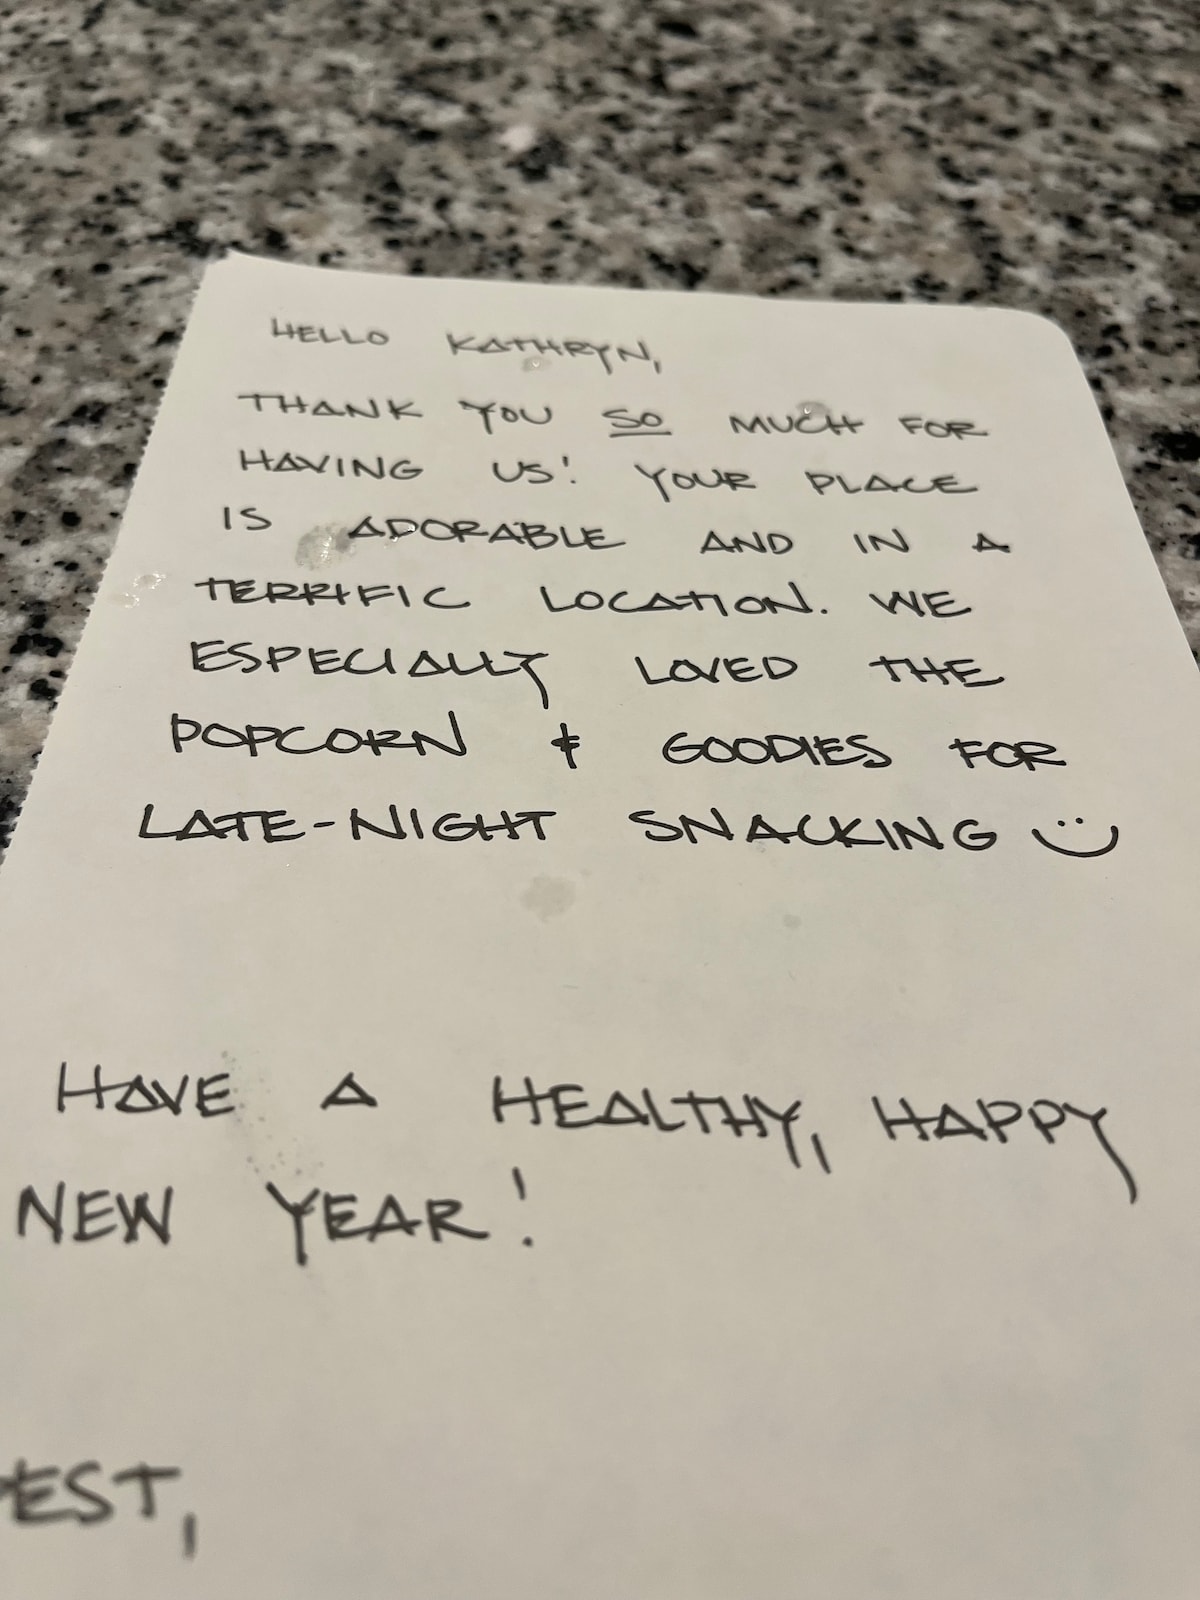 HELLO KATHRYN,
THANK YOU SO MUCH FOR
HAVING US! YOUR PLACE
IS ADORABLE AND IN A
TERRIFIC LOCATION. WE
ESPECIALLY LOVED THE
POPCORN & GOODIES FOR
LATE-NIGHT SNACKING
HAVE A HEALTHY, HAPPY
NEW YEAR!
EST,